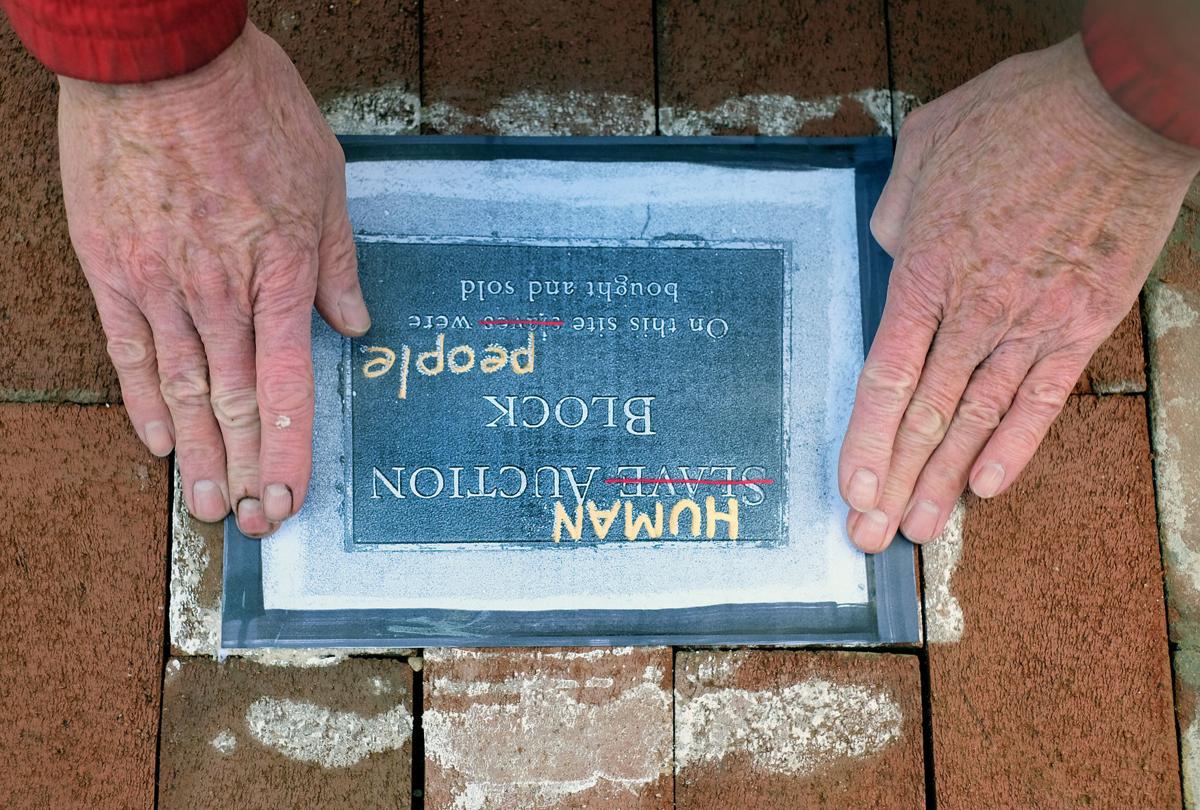 HUMAN
SLAVE AUCTION
BLOCK
people
On this site slaves were
bought and sold